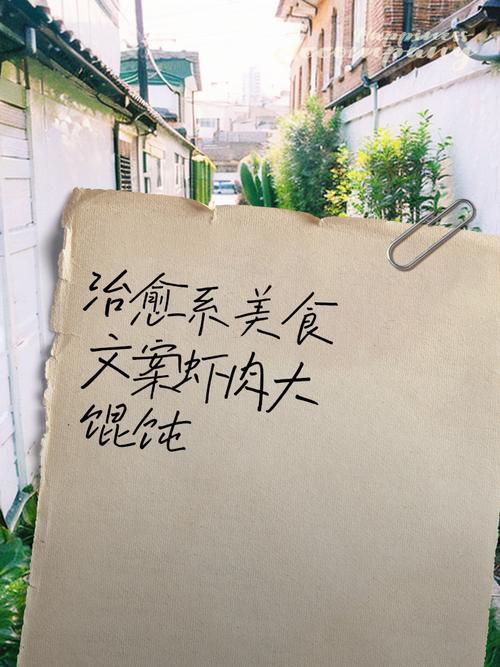 Happiness
accompany
治愈系美食
文案虾肉大
馄饨